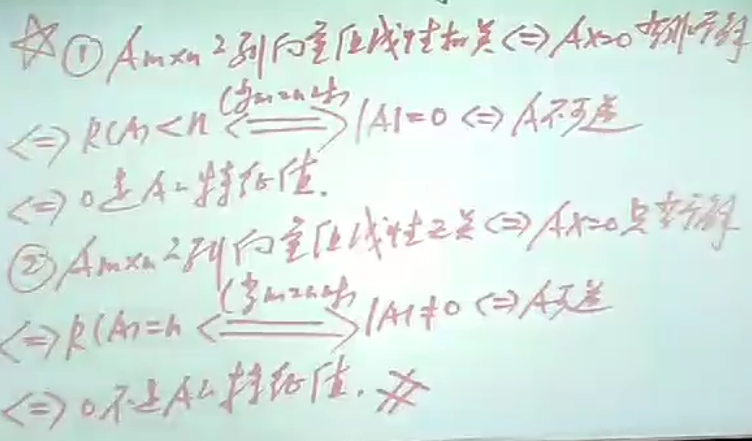 ☆① Am×n之列向量组线性相关<=>Ax=0有非零解
<=> R(A)<n <=(当m=n时)=> |A|=0 <=> A不可逆
<=> 0是A之特征值.
② Am×n之列向量组线性无关<=>Ax=0只有零解
<=> R(A)=n <=(当m=n时)=> |A|≠0 <=> A可逆
<=> 0不是A之特征值.